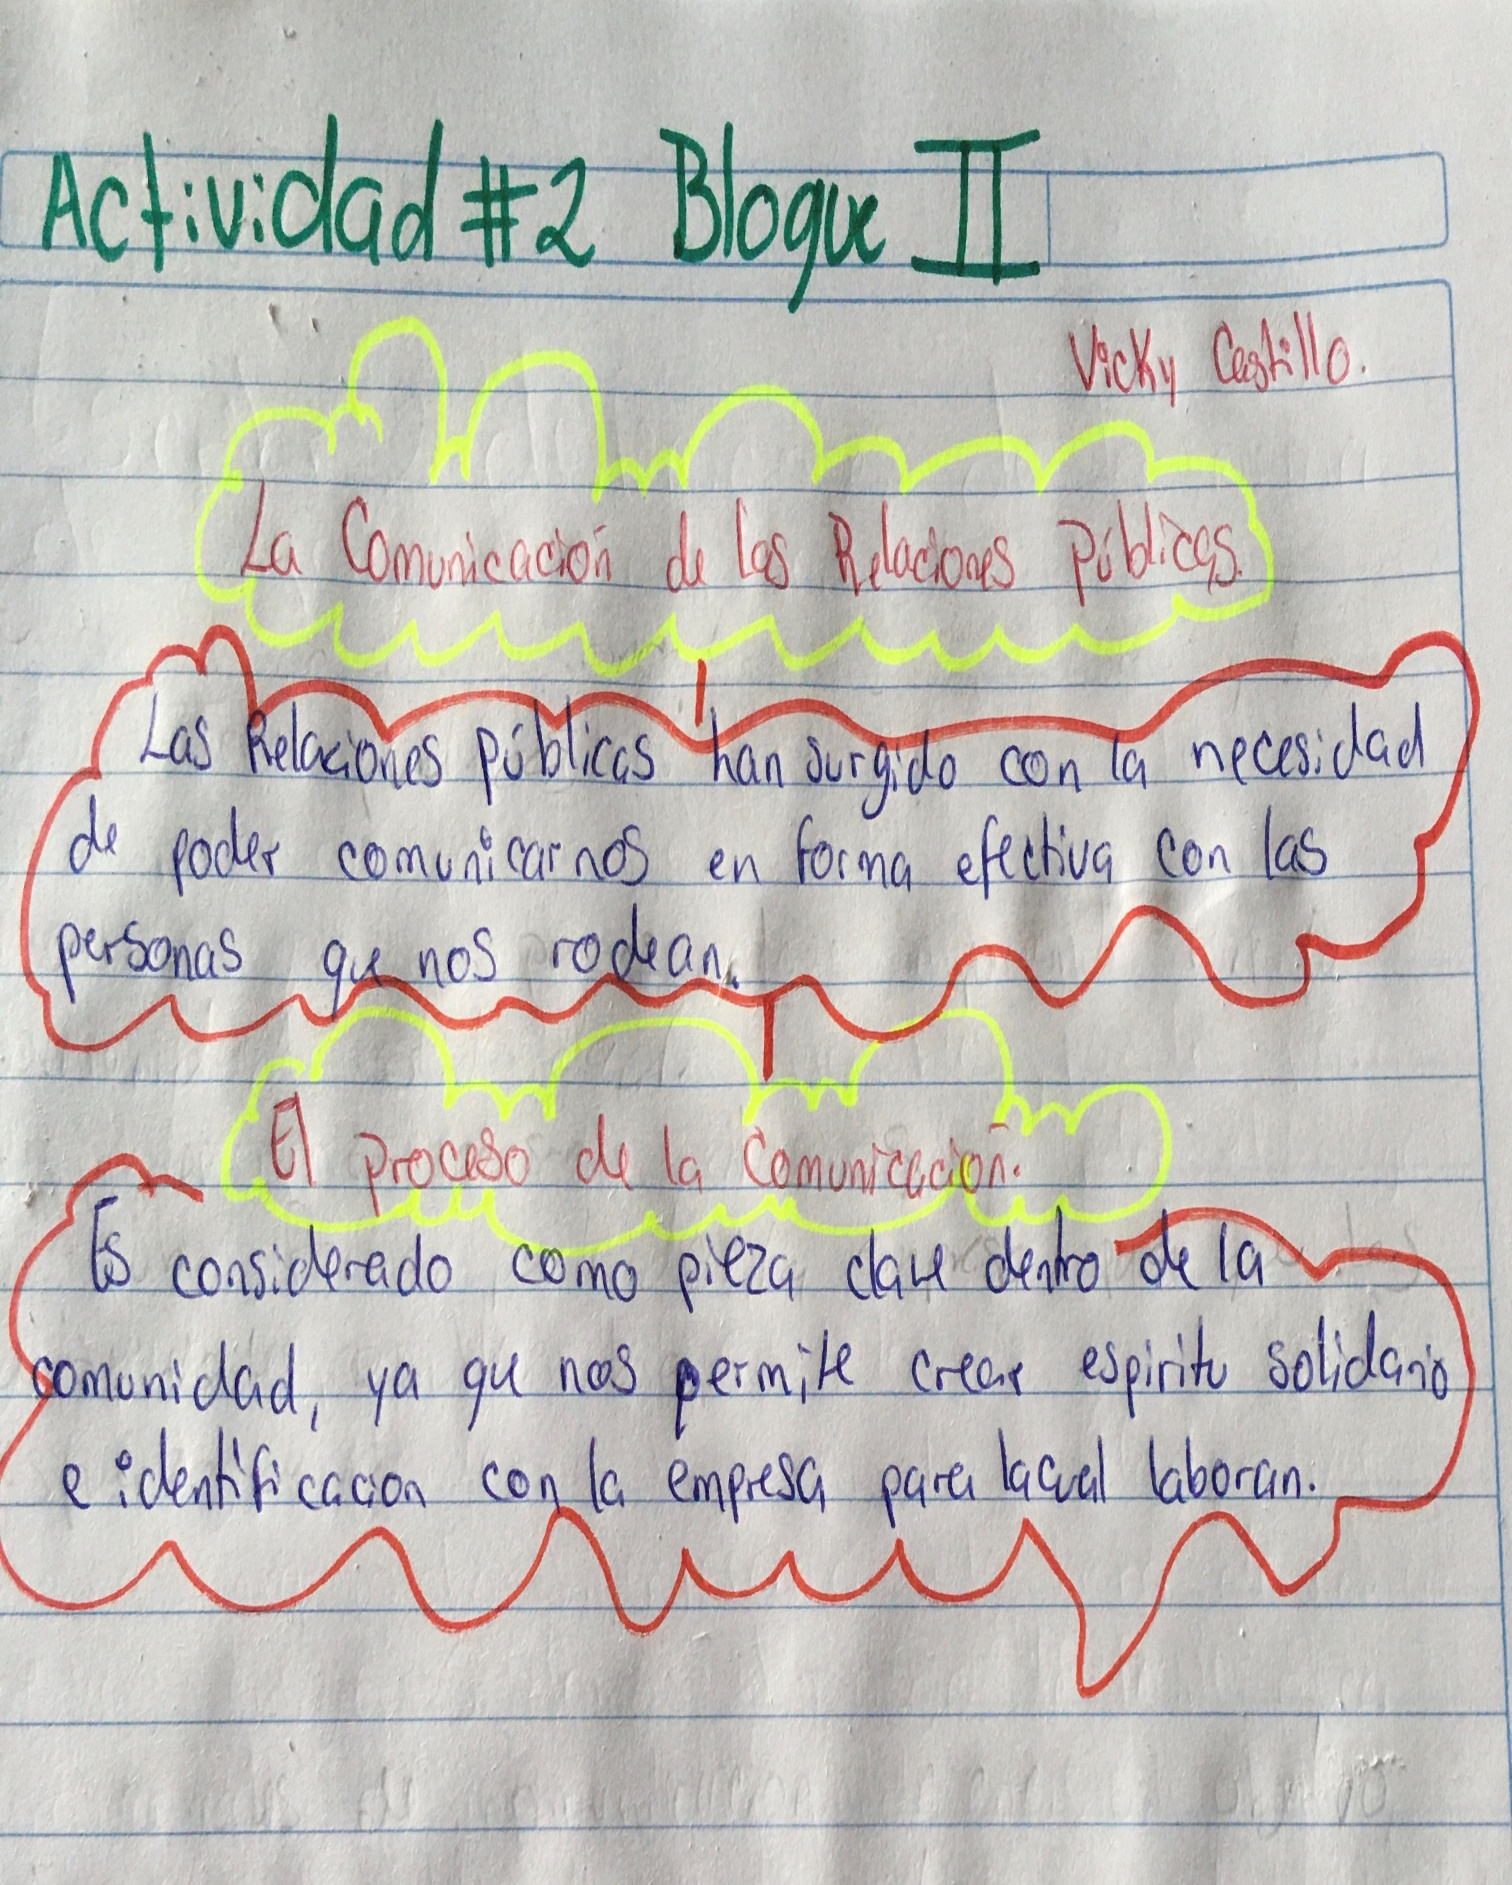 Actividad #2 Bloque II
Vicky Castillo.
La Comunicación de las Relaciones Públicas.
Las Relaciones públicas han surgido con la necesidad
de poder comunicarnos en forma efectiva con las
personas que nos rodean.
El proceso de la Comunicación.
Es considerado como pieza clave dentro de la
comunidad, ya que nos permite crear espiritu solidario
e identificacion con la empresa para lacual laboran.